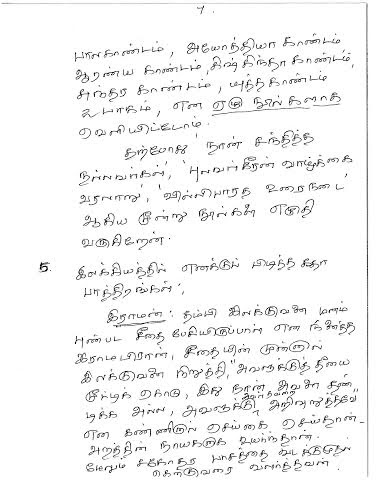 7.
பாலகாண்டம், அயோத்தியா காண்டம்
ஆரண்ய காண்டம், கிஷ்கிந்தா காண்டம்,
சுந்தர காண்டம், யுத்த காண்டம்
என ஏழு நூல்களாக
வெளியிட்டோம்.
தற்போது நான் சந்தித்த
நல்லவர்கள், புலவர் கீரன் வாழ்க்கை
வரலாறு, வில்லிபாரத உரைநடை
ஆகிய மூன்று நூல்கள் எழுதி
வருகிறேன்.
5. இலக்கியத்தில் எனக்குப் பிடித்த கதா
பாத்திரங்கள்;
இராமன்: தம்பி இலக்குவனை மனம்
புண்பட சீதை பேசியிருப்பாள் என நினைத்த
இராமபிரான், சீதையின் முன்னால்
இலக்குவனை நிறுத்தி, அவளுக்குத் தீயை
மூட்டிக் கொடு, இது நான் அவளை தண்
டிக்க அல்ல, அவளுக்கு அறிவுறுத்தவே
என கண்ணால் செய்கை செய்தான்-
அறத்தின் நாயகனாக உயர்ந்தான்.
மேலும் சகோதர பாசத்தை
வளர்த்தவன்.